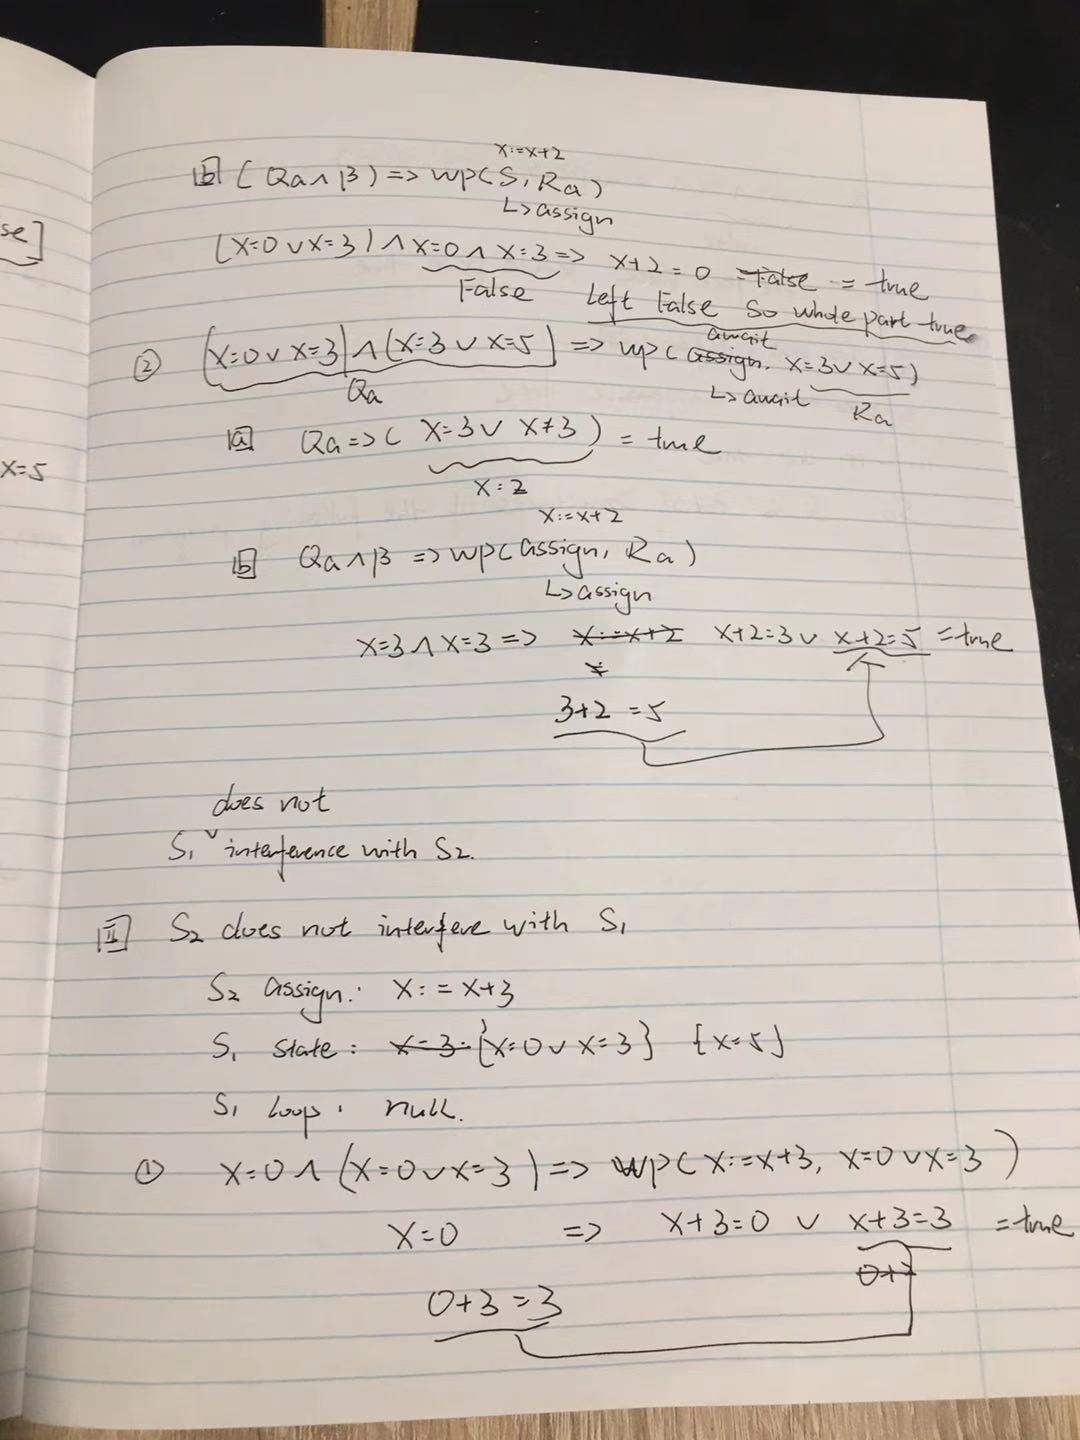 x:=x+2
[b] (Qa∧β) => wp(S, Ra)
↳assign
(x=0∨x=3)∧x=0∧x=3 => x+2=0 False = true
False Left False So whole part true
② (x=0∨x=3)∧(x=3∨x=5) => wp( assign. await x=3∨x=5)
Qa ↳await Ra
[a] Qa=>( x=3∨ x≠3 ) = true
x:2
x:=x+2
[b] Qa∧β => wp(assign, Ra)
↳assign
x=3∧x=3 => x:=x+2 x+2=3∨ x+2=5 =true
3+2 =5
does not
S₁ ∨ interference with S₂.
[II] S₂ does not interfere with S₁
S₂ assign: x:=x+3
S₁ state: x=3: {x=0∨x=3} {x=5}
S₁ loop: null.
① x=0∧(x=0∨x=3)=> wp(x:=x+3, x=0∨x=3)
x=0 => x+3=0 ∨ x+3=3 =true
0+3 =3
se]
x=5